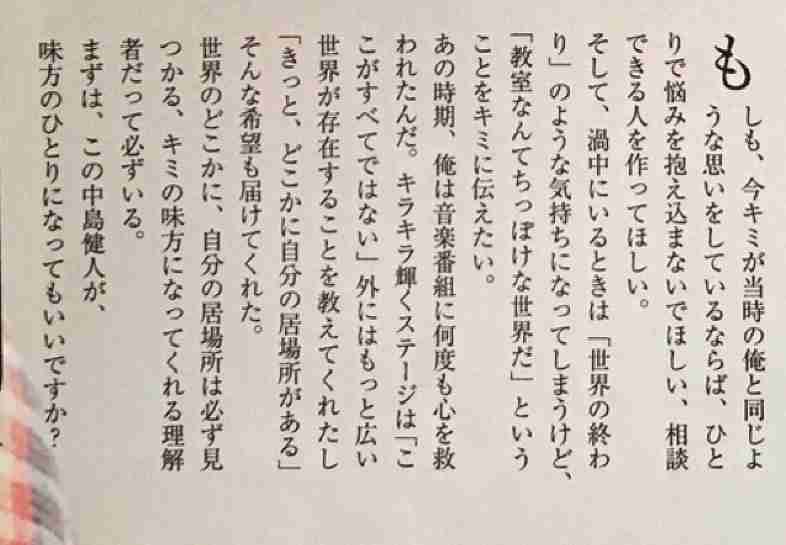 もしも、今キミが当時の俺と同じよ
うな思いをしているならば、ひと
りで悩みを抱え込まないでほしい、相談
できる人を作ってほしい。
そして、渦中にいるときは「世界の終わ
り」のような気持ちになってしまうけど、
「教室なんてちっぽけな世界だ」という
ことをキミに伝えたい。
あの時期、俺は音楽番組に何度も心を救
われたんだ。キラキラ輝くステージは「こ
こがすべてではない」外にはもっと広い
世界が存在することを教えてくれたし
「きっと、どこかに自分の居場所がある」
そんな希望も届けてくれた。
世界のどこかに、自分の居場所は必ず見
つかる、キミの味方になってくれる理解
者だって必ずいる。
まずは、この中島健人が、
味方のひとりになってもいいですか?